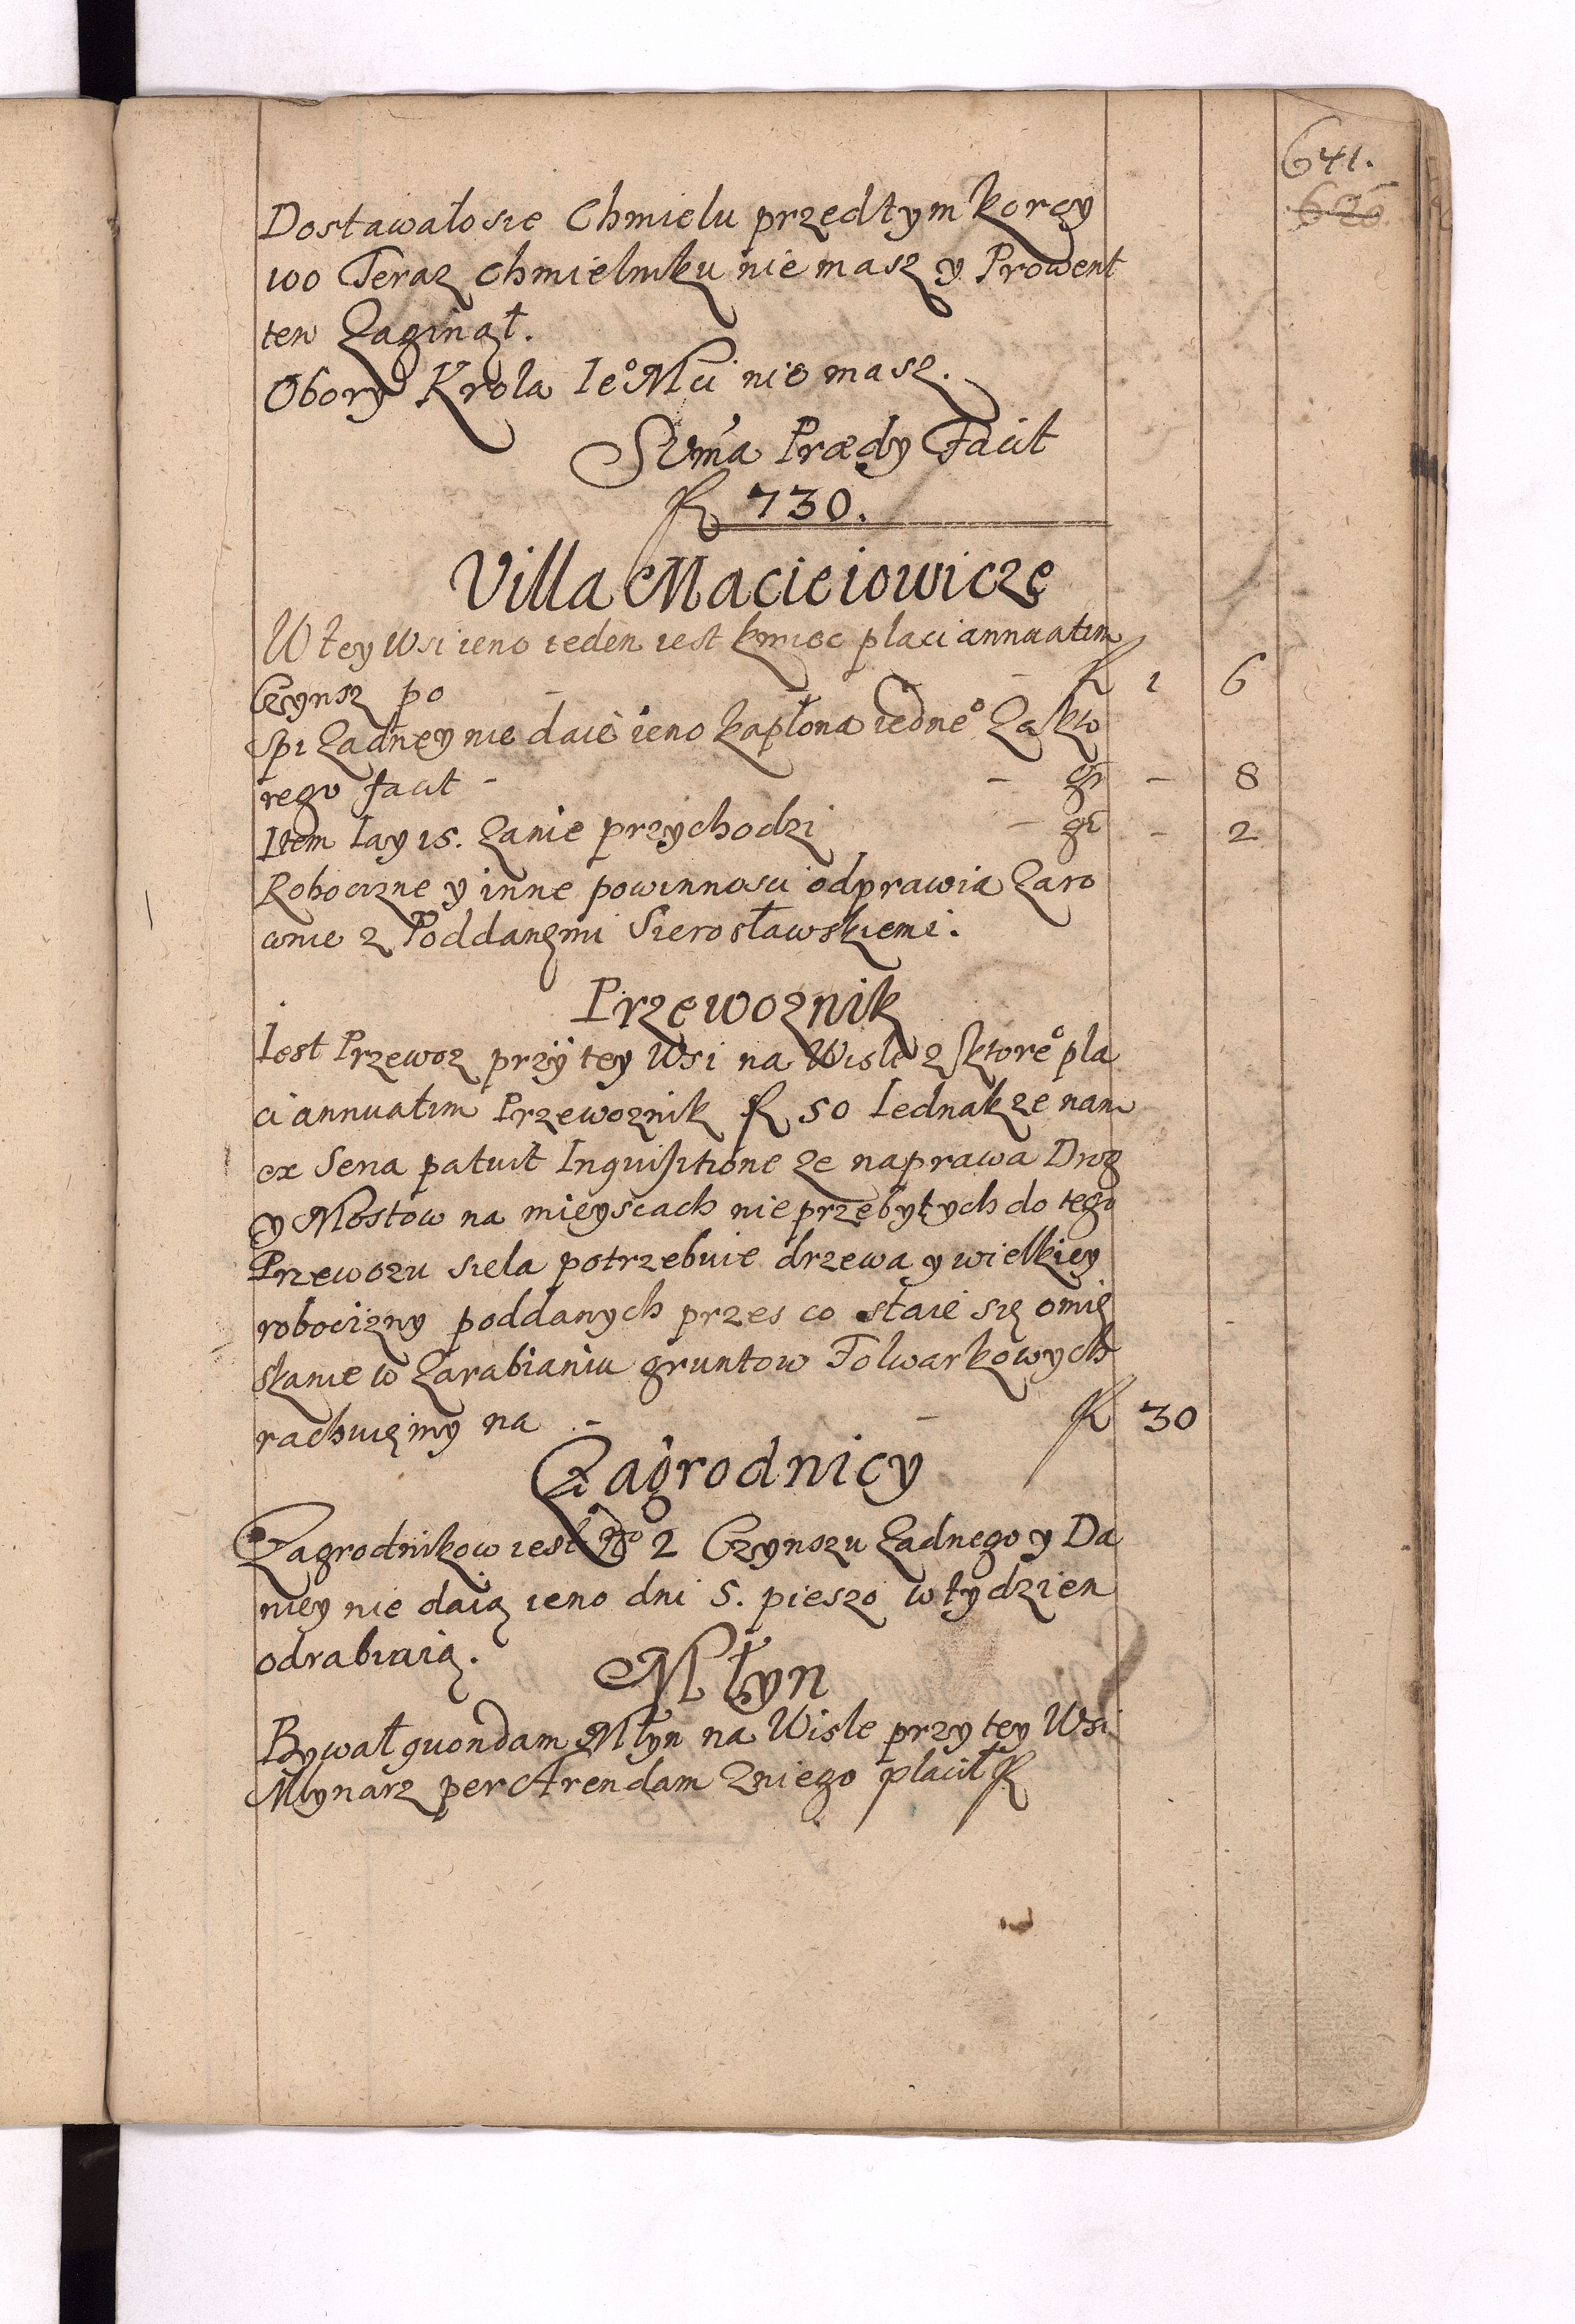 641.
Dostawało sie Chmielu przedtym korcy
100 Teraz chmielniku nie masz y Prowent
ten Zaginął.
Obory Krola Ie° Mci nie masz.
Suma Prædy Facit
fl 730.
Villa Macieiowicze
W tey Wsi ieno ieden iest kmioc placi annuatim
Czynsz po - - fl 1 6
Spi Zadney nie daie ieno kapłona iedne° Za kto
rego facit - - gr - 8
Item Iay 15. Zanie przychodzi - gr - 2
Robocizne y inne powinnosci odprawia Zaro
wnie z Poddanemi Sierosławskiemi.
Przewoznik
Iest Przewoz przy tey Wsi na Wisle z ktore° pla
ci annuatim Przewoznik fl 50 Iednak ze nam
ex Seria patuit Inquisitione ze naprawa Drog
y Mostow na mieyscach nieprzebytych do tego
Przewozu siela potrzebuie drzewa y wielkiey
robocizny poddanych przes co staie się omię
skanie w Zarabianiu gruntow Folwarkowych
rachuiemy na - - fl 30
Zagrodnicy
Zagrodnikow iest No 2 Czynszu Zadnego y Da
niey nie daią ieno dni 5. pieszo w tydzien
odrabiaią.
Młyn
Bywał quondam Młyn na Wisle przy tey Wsi
Mlynarz per Arendam Zniego płacił fl